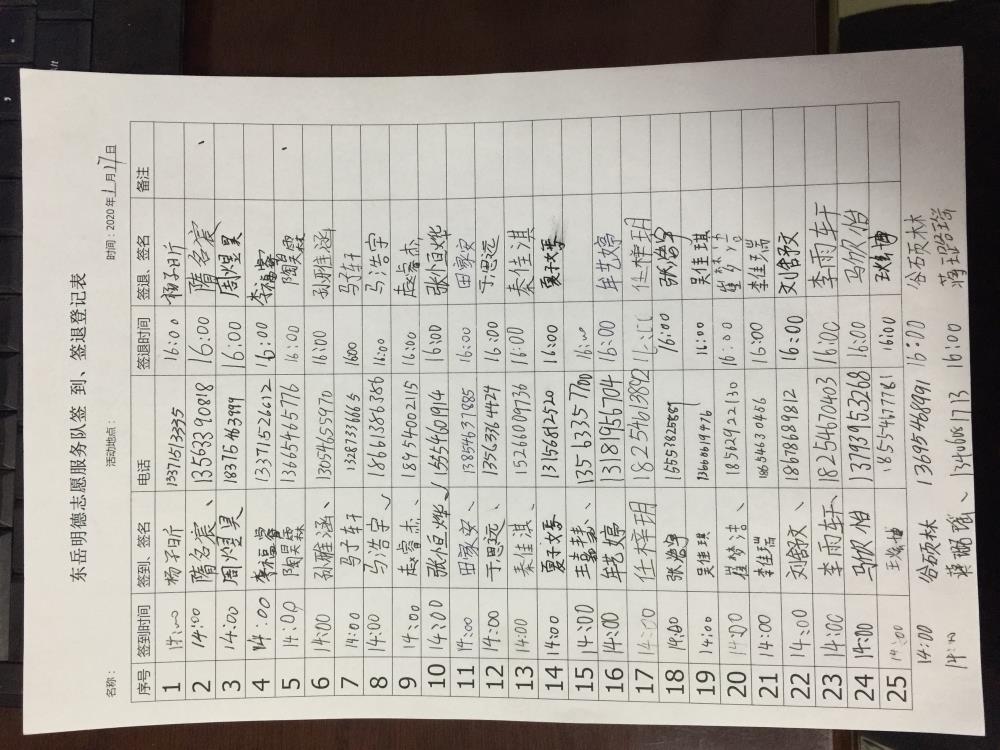 东岳明德志愿服务队签 到、签退登记表
名称： 活动地点： 时间：2020年11月17日
序号 签到时间 签到、签名 电话 签退时间 签退、签名 备注
1 14:00 杨子昕 13371513335 16:00 杨子昕
2 14:00 隋名宸、 13563390818 16:00 隋名宸
3 14:00 周煜昊 18376463999 16:00 周煜昊
4 14:00 李福睿 13371526612 16:00 李福睿
5 14:00 陶昊霖 13665465776 16:00 陶昊霖
6 14:00 孙雅涵、 13054655970 16:00 孙雅涵
7 14:00 马子轩 13287336665 1600 马子轩
8 14:00 马浩宇 18661386386 16:00 马浩宇
9 14:00 赵睿杰、 18954002115 16:00 赵睿杰
10 14:00 张恒烨 15554601914 16:00 张恒烨
11 14:00 田家安、 13854637885 16:00 田家安
12 14:00 于思远、 13563764429 16:00 于思远
13 14:00 秦佳淇、 15266091736 16:00 秦佳淇
14 14:00 夏子女 13156812520 16:00 夏子女
15 14:00 王 13563357700 16:00
16 14:00 牟艺婷 13181956704 16:00 牟艺婷
17 14:00 任梓玥 18254613892 16:00 任梓玥
18 14:00 张 15553825889 16:00 张
19 14:00 吴佳琪 13660619476 16:00 吴佳琪
20 14:00 崔梦洁、 18562922130 16:00 崔梦洁
21 14:00 李佳瑞 18654630456 16:00 李佳瑞
22 14:00 刘舒文、 18678689812 16:00 刘舒文
23 14:00 李雨轩、 18254670403 16:00 李雨轩
24 14:00 马欣怡 13793953268 16:00 马欣怡
25 14:00 王 18554677781 16:00 王
14:00 谷硕林 13695468991 16:00 谷硕林
14:00 蒋璐瑶、 13406081713 16:00 蒋璐瑶